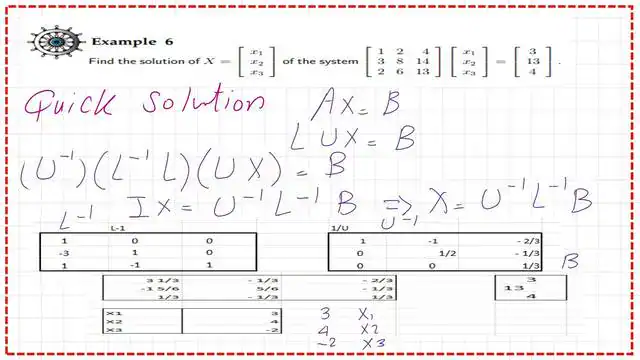 Example 6
Find the solution of X = [x₁ x₂ x₃] of the system [1 2 4; 3 8 14; 2 6 13] [x₁ x₂ x₃] = [3 13 4].
Quick Solution AX = B
LUX = B
(U⁻¹)(L⁻¹L)(UX) = B
IX = U⁻¹L⁻¹B ⇒ X = U⁻¹L⁻¹B
L⁻¹ L-1 1/U U⁻¹
1 0 0 1 -1 - 2/3
-3 1 0 0 1/2 - 1/3
1 -1 1 0 0 1/3 B
3 1/3 - 1/3 - 2/3 3
-1 5/6 5/6 - 1/3 13
1/3 - 1/3 1/3 4
X1 3 3 X1
X2 4 4 X2
X3 -2 -2 X3